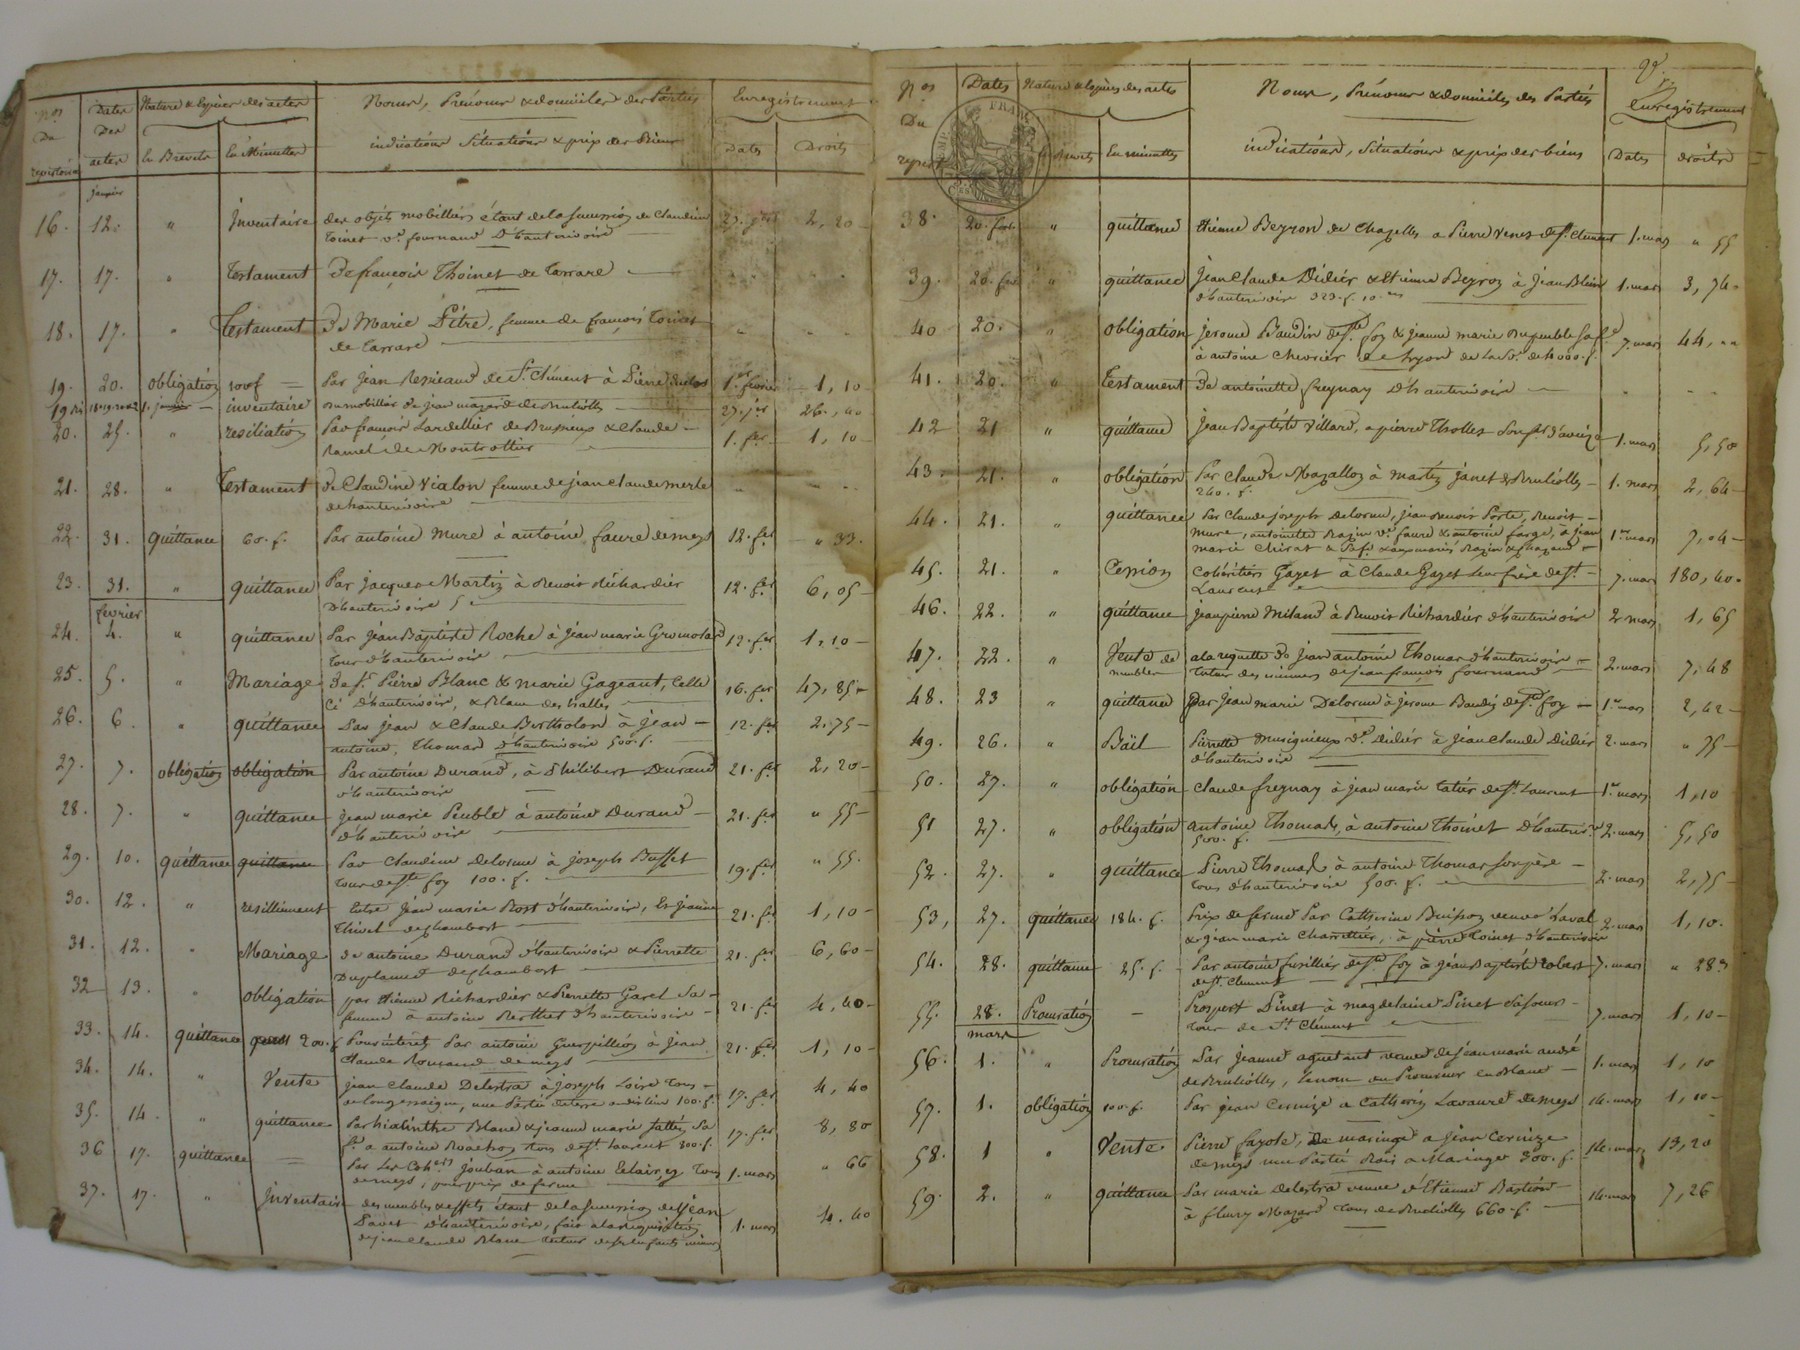 Nos Dates Nature & Espèces des actes Noms, Prénoms & domiciles des Parties Enregistrement
Du Des
répertoire actes En Brevets En Minuttes indications Situations & prix des Biens Dates Droits
janvier
16. 12. " Inventaire des objets mobilliers étant de la succession de Claudine 2,20
Toinet ve fournand D'hauterivoire
17. 17. " Testament De françois Thoinet de Tarrare
18. 17. " Testament De Marie Pitre, femme de françois Toinet
de Tarrare
19. 20. obligation 100f Par Jean de St. Clément à Pierre 1er février 1,10
19 bis inventaire du mobillier de jean mazard de Bruliolles 26,40
20. 25. " résiliation Par françois Lardellier de Brussieux & Claude 1. fer 1,10
Ramel de Montrottier
21. 28. " Testament de Claudine Vialon femme de jean claude merle
de hauterivoire
22. 31. quittance 60. f. Par antoine Mure à antoine faure demeys 12. fer " 33.
23. 31. " quittance Par jacques Martin à Benoit Richardier 12. fer 6,05
D'hauterivoire
fevrier
24. 4. " quittance Par Jean Baptiste Roche à Jean marie Gromolard 12. fer 1,10
tous d'hauterivoire
25. 5. " Mariage De Sr. Pierre Blanc & marie Gageant, Celle 16. fer 47,85
Ci D'hauterivoire, & Blanc des halles
26. 6. " quittance Par Jean & Claude Bertholon à Jean 12. fer 2.75
antoine, Thomas D'hauterivoire 500. f.
27. 7. obligation obligation Par antoine Durand, à Philibert Durand 21. fer 2,20
d'hauterivoire
28. 7. " quittance jean marie Peuble à antoine Durand 21. fer " 55
D'hauterivoire
29. 10. quittance quittance Par Claudine Delorme à joseph Buffet 19. fer " 55.
tous de Ste foy 100. f.
30. 12. " resiliment Entre Jean marie Bost d'hauterivoire, Et Jeanne 21. fer 1,10
Thivel de chambost
31. 12. " Mariage de antoine Durand d'hauterivoire & Pierrette 21. fer 6,60
de chambost
32 13. " obligation par étienne Richardier & Pierrette Garel sa 21. fer 4,40
femme à antoine Berthet d'hauterivoire
33. 14. quittance 200. f Pour intérêts Par antoine Guerpillion à Jean 21. fer 1,10
Claude Romand demeys
34. 14. " Vente jean Claude Delestra à joseph Loire tous 17. fer 4,40
de longessaigne, une Partie de terre audit lieu 100. f.
35. 14. " quittance Par hiacinthe Blanc & jeanne marie tatier, sa 17. fer 8,80
fe. a antoine tous de St. Laurent 300. f.
36 17. quittance Par Les Cohers jouban à antoine tous 1. mars " 66
demeys, pour prix de ferme
37. 17. " Inventaire des meubles & effets étant de la succession de Jean 1. mars 4.40
d'hauterivoire, fait a la requisition
de jean claude Blanc tuteur de ses enfants mineurs
Nos Dates Nature & Espèces des actes Noms, Prénoms & domiciles des Parties Enregistrement
Du
répert En Brevets En minuttes indications, Situations & prix des biens Dates droits
38. 20. fer " quittance étienne Beyron de Chazelles a Pierre Venet de St. Clément 1. mars " 55
39. 20. fer " quittance Jean Claude Didier & Etienne Beyron à Jean Blein 1. mars 3,74
d'hauterivoire 323. f. 10. cs
40 20. " obligation jerome Baudin de Ste foy & jeanne marie Dupeuble sa fe 7. mars 44, ""
à antoine Chevrier de Lyon de la Se. de 4000. f.
41. 20. " Testament De antoinette freynay D'hauterivoire
42 21 " quittance Jean Baptiste Villard, a pierre Tholles d'aveize 1. mars 5,50
43. 21. " obligation Par Claude Mazallon à Martin janet de Bruliolles 1. mars 2,64
240. f.
44. 21. " quittance Par Claude joseph Delorme, Jean Benoit Porte, Benoit
Mure, antoinette Razin ve. faure & antoine farge, à jean 1er mars 7,04
marie Chirat
45. 21. " Cession Cohéritiers Gayet à Claude Gayet leur frère de St. 7. mars 180,40.
Laurent
46. 22. " quittance jean pierre Milan à Benoit Richardier d'hauterivoire 2 mars 1,65
47. 22. " Vente de a la requette de Jean antoine Thomas d'hauterivoire 2. mars 7,48
meubles tuteur des mineurs de jean françois fournand
48. 23 " quittance Par Jean marie Delorme à Jerome Baudin de Ste foy 1er mars 2,42
49. 26. " Bail Pierrette Musignieux ve. Didier à Jean Claude Didier 2. mars " 75
d'hauterivoire
50. 27. " obligation Claude freynay à jean marie tatier de St Laurent 1er mars 1,10
51 27. " obligation antoine Thomas, à antoine Thoinet D'hauterive 2. mars 5,50
500. f.
52. 27. " quittance Pierre Thomas à antoine Thomas son père 2. mars 2,75
tous d'hauterivoire 500. f.
53, 27. quittance 184. f. Prix de ferme Par Catherine Buisson veuve Naval 2. mars 1,10.
& jean marie Charretier, à pierre Toinet d'hauterivoire
54. 28. quittance 25. f. Par antoine fusillier de Ste foy à Jean Baptiste Robert 7. mars " 28
de St. Clément
55. 28. Procuration Prospert Pinet à magdelaine Pinet sa soeur 7. mars 1,10
tous de St Clément
mars
56. 1. " Procuration Par Jeanne veuve de jean marie andré 1. mars 1,10
de Brulliolles, Le nom du Procureur en Blanc
57. 1. obligation 100. f. Par jean Cernize a Catherin Lavaure demeys 14. mars 1,10
58. 1 " Vente Pierre fayole, De maringe a Jean Cernize 14. mars 13,20
demeys une Partie Bois a Maringes 300. f.
59. 2. " quittance Par marie Delestra veuve d'Etienne Bastion 14. mars 7,26
à fleury Mazard tous de Brulliolles 660. f.